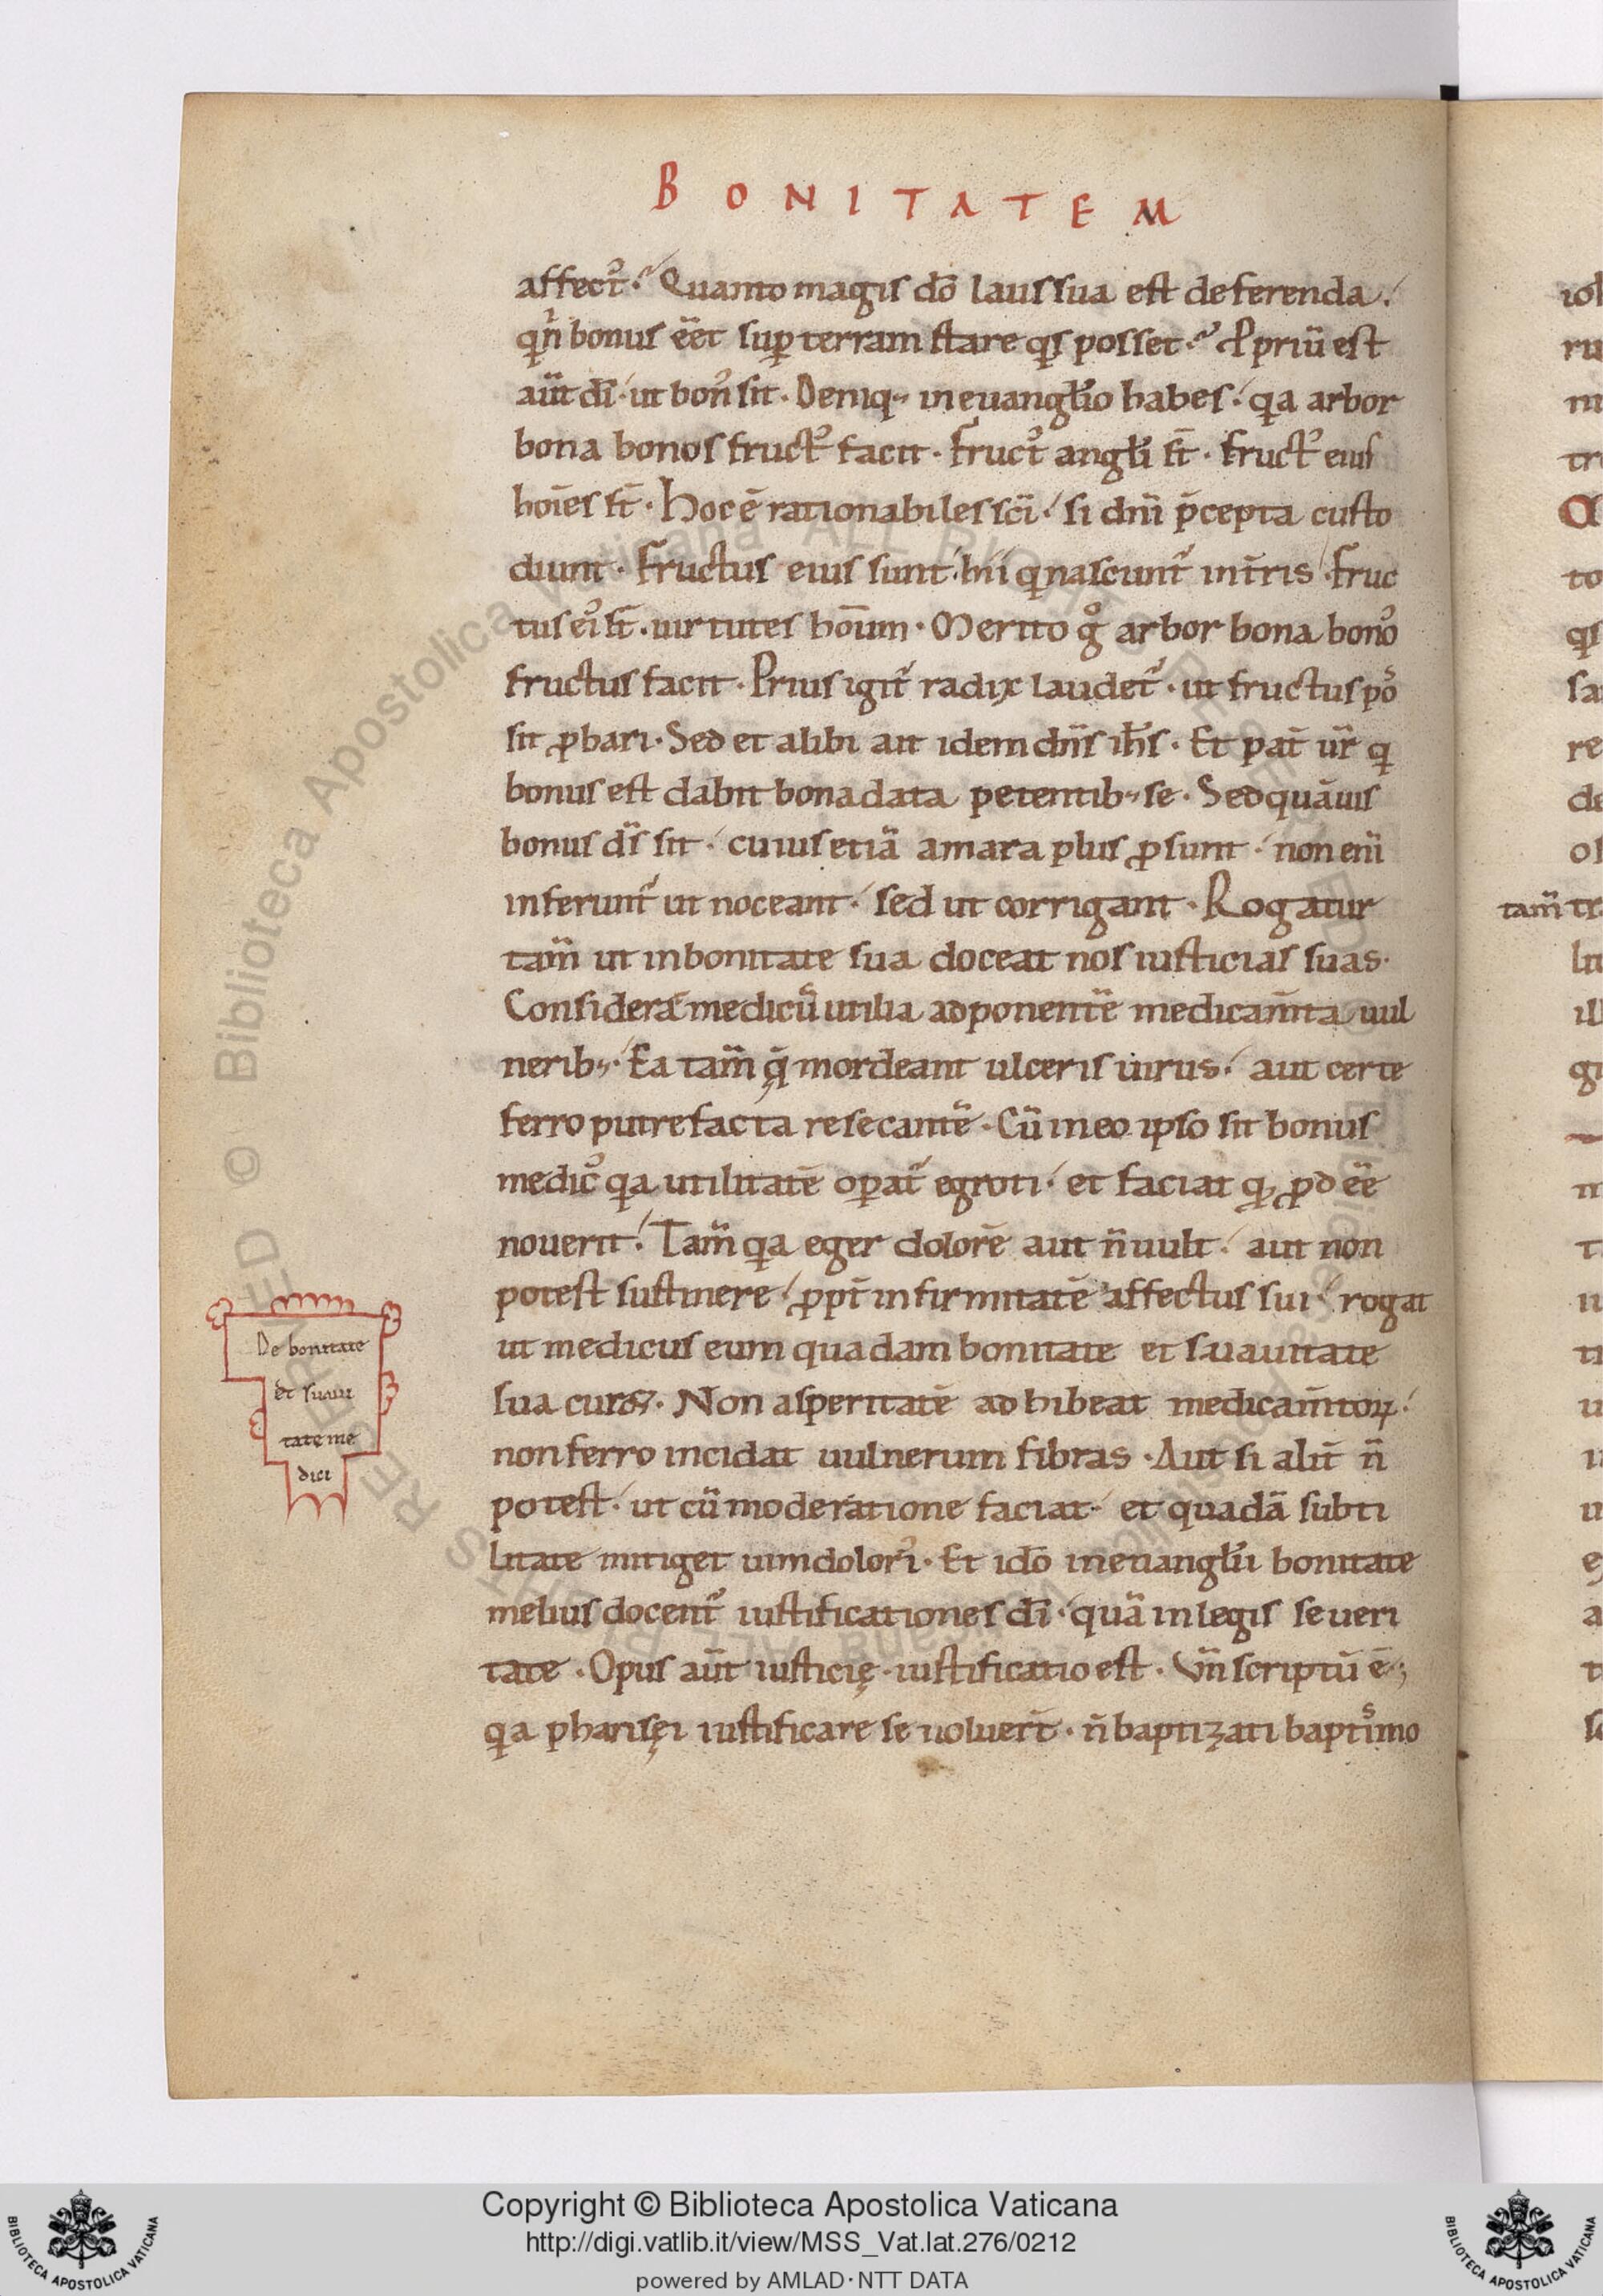 BONITATEM
affect᷒. Quanto magis dō laus sua est deferenda.
qn̄ bonus ēēt sup̱ terram stare qs posset. Ꝓpriū est
aūt dī. ut bon᷒ sit. Deniq; in euangl̄io habes. qa arbor
bona bonos fruct᷒ facit. Fruct᷒ angl̄i st̄. fruct᷒ eius
hoīes st̄. Hoc ē rationabiles sc̄i. si dn̄i p̄cepta custo
diunt. Fructus eius sunt. hii q nascunt᷑ in t̄ris. Fruc
tus ei᷒ st̄. uirtutes hoīum. Merito gͦ arbor bona bono᷒
fructus facit. Prius igit᷑ radix laudet᷑. ut fructus pos
sit ꝓbari. Sed et alibi ait idem dn̄s ih̄s. Et pat̄ ur̄ q
bonus est dabit bona data petentib; se. Sed quāuis
bonus ds̄ sit. cuius etiā amara plus ꝓsunt. non eni̅
inferunt᷑ ut noceant. sed ut corrigant. Rogatur
tam̄ ut in bonitate sua doceat nos iusticias suas.
Considera medicū utilia adponentē medicam̄ta uul
nerib;. Ea tam̄ q̄ mordeant ulceris uirus. aut certe
ferro putrefacta resecantē. Cū in eo ipso sit bonus
medic᷒ qa utilitatē op̱at᷑ egroti. et faciat qꝫ ꝓdēē
nouerit. Tam̄ qa eger dolorē aut n̄ uult. aut non
potest sustinere. ꝓpt̄ infirmitatē affectus sui. rogat
ut medicus eum quadam bonitate et suauitate
sua curet. Non asperitatē adhibeat medicam̄toꝝ.
non ferro incidat uulnerum fibras. Aut si alit̄ n̄
potest. ut cū moderatione faciat. et quadā subti
litate mitiget uim dolori᷒. Et idō in euangl̄ii bonitate
melius docent᷑ iustificationes dī. quā in legis seueri
tate. Opus aūt iusticię. iustificatio est. Vn̄ scriptū ē;
qa pharisęi iustificare se noluer̄t. n̄ baptizati baptismo
De bonitate
et suaui
tate me
dici
tam̄ tr
Copyright © Biblioteca Apostolica Vaticana
http://digi.vatlib.it/view/MSS_Vat.lat.276/0212
powered by AMLAD·NTT DATA
BIBLIOTECA APOSTOLICA VATICANA
BIBLIOTECA APOSTOLICA VATICANA